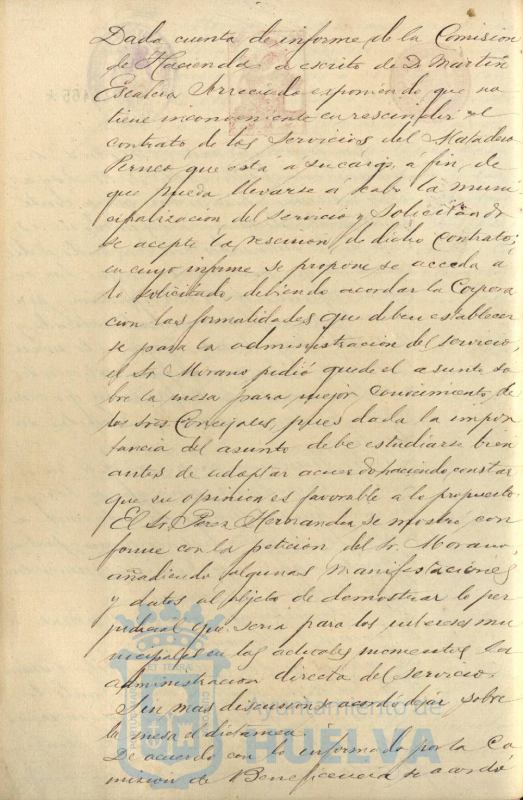 Dada cuenta de informe de la Comisión
de Hacienda a escrito de D. Martin
Escalera Arreciado exponiendo que no
tiene inconveniente en rescindir el
contrato de los Servicios del Matadero
Perneo que está a su cargo, a fin de
que pueda llevarse a cabo la muni
cipalizacion del servicio y solicitando
se acepte la rescision de dicho contrato;
en cuyo informe se propone se acceda a
lo solicitado, debiendo acordar la Corpora
cion las formalidades que deben establecer
se para la administracion del servicio,
el Sr. Morano pidió quede el asunto so
bre la mesa para mejor conocimiento de
los Sres Concejales, pues dada la impor
tancia del asunto debe estudiarse bien
antes de adoptar acuerdo, haciendo constar
que su opinion es favorable a lo propuesto
El Sr. Perez Hernandez se mostró con
forme con la peticion del Sr. Morano,
añadiendo algunas manifestaciones
y datos al objeto de demostrar lo per
judicial que seria para los intereses mu
nicipales en los actuales momentos la
administracion directa del servicio.
Sin mas discusion se acordó dejar sobre
la mesa el dictamen.
De acuerdo con lo informado por la Co
mision de Beneficencia se acordó
Ayuntamiento de
HUELVA